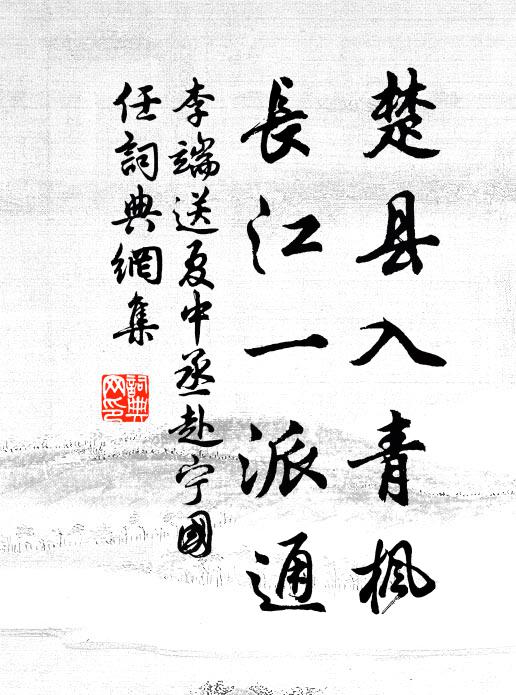 楚县入青枫
長江一派通
李端送夏中丞赴宁國
任詞典網集
詞典网印